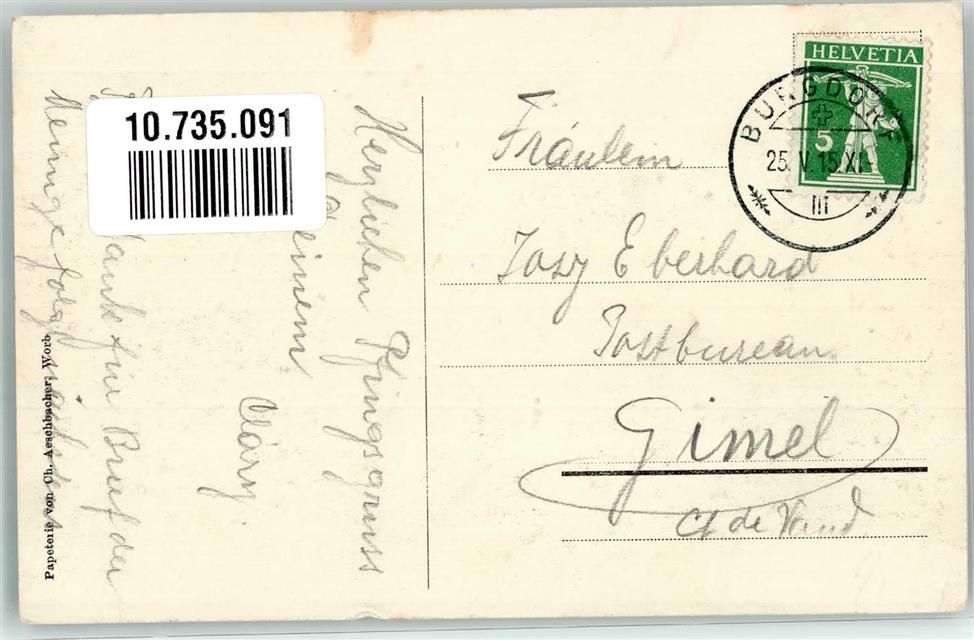 HELVETIA
5
BURGDORF
25.V.15.XI-
III
10.735.091
Fräulein
Josy Eberhard
Postbureau
Gimel
Ct de Vaud
Herzlichen Pfingstgruss
Deinem
Mary
Dank für Brief der
Meinige folgt nächstens
Papeterie von Ch. Aeschbacher, Worb